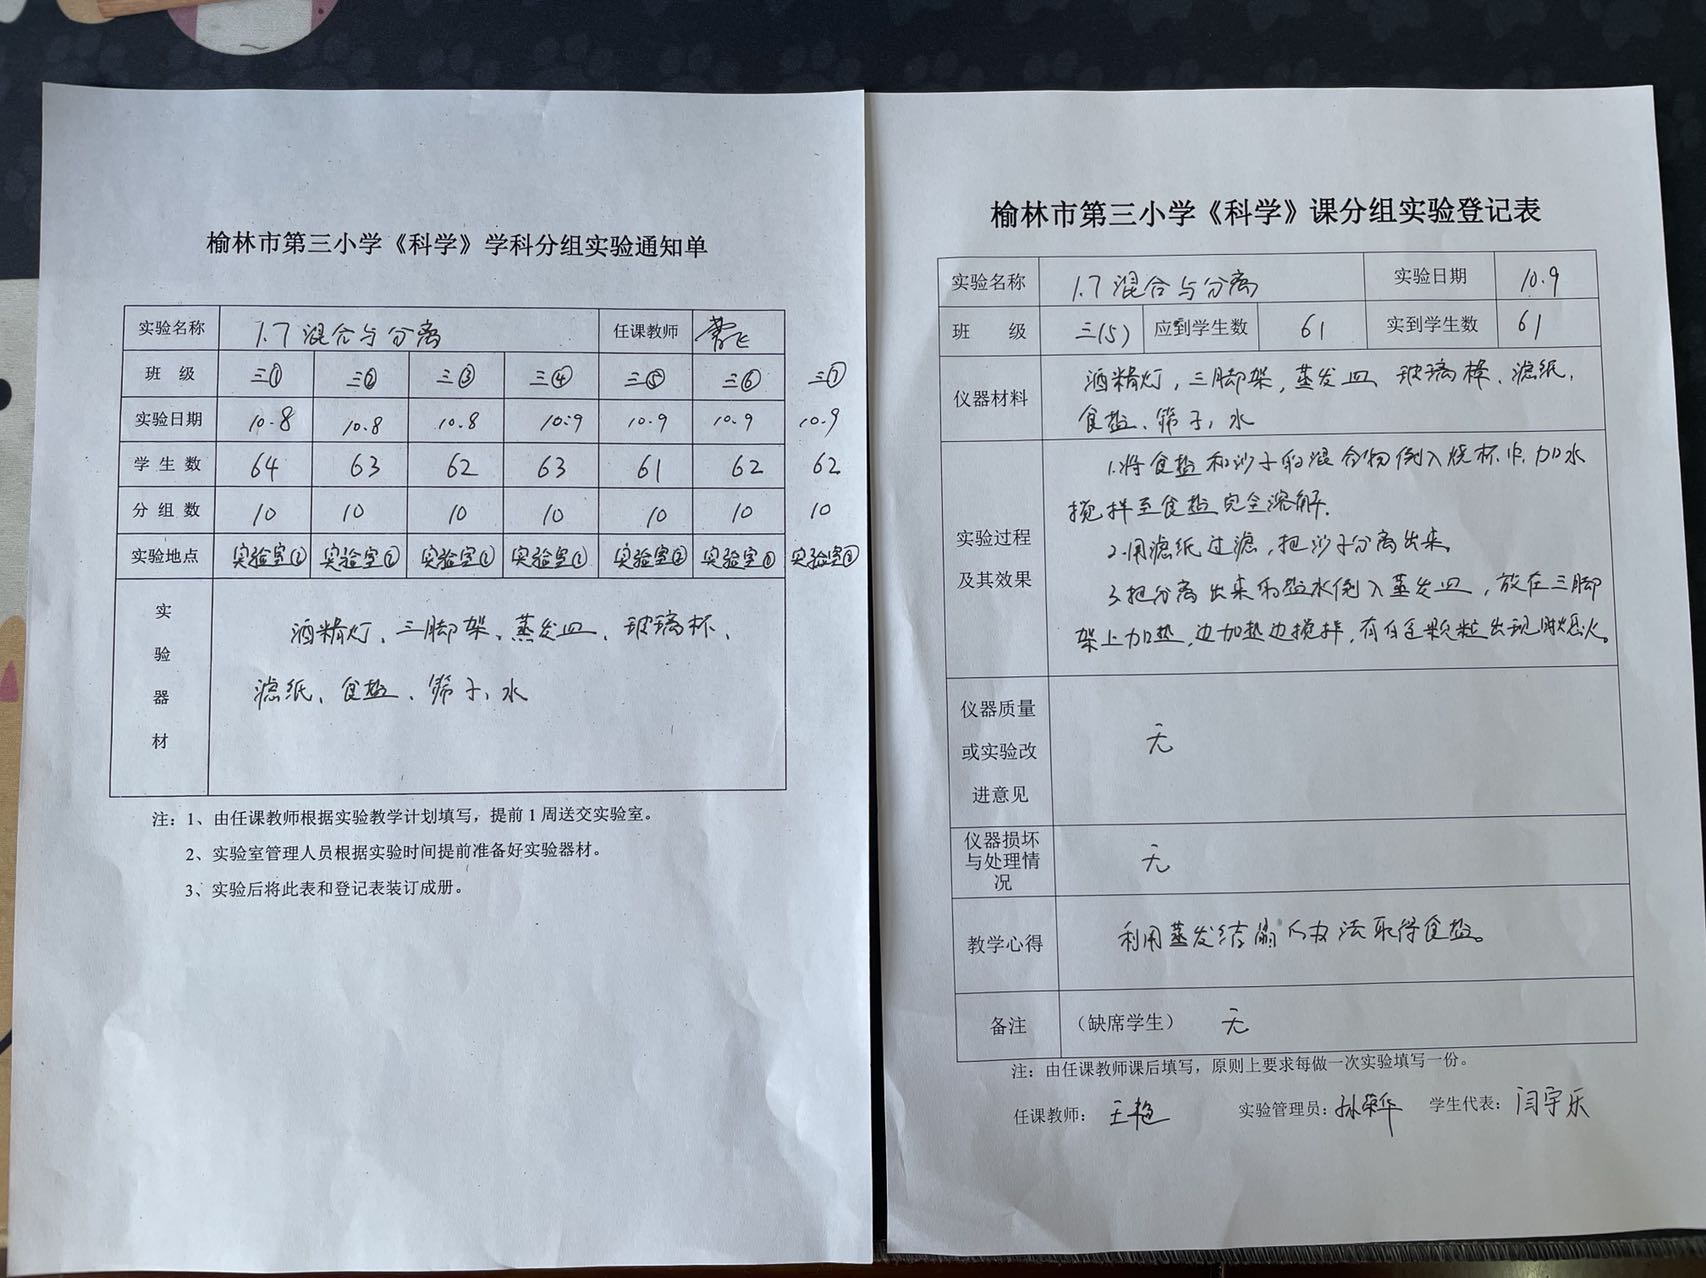 榆林市第三小学《科学》学科分组实验通知单
实验名称 1.7混合与分离 任课教师
班 级 三① 三② 三③ 三④ 三⑤ 三⑥ 三⑦
实验日期 10.8 10.8 10.8 10.9 10.9 10.9 10.9
学 生 数 64 63 62 63 61 62 62
分 组 数 10 10 10 10 10 10 10
实验地点 实验室 实验室 实验室 实验室 实验室 实验室 实验室
实
验
器
材
酒精灯、三脚架、蒸发皿、玻璃杯、
滤纸、食盐、筛子、水
注：1、由任课教师根据实验教学计划填写，提前1周送交实验室。
2、实验室管理人员根据实验时间提前准备好实验器材。
3、实验后将此表和登记表装订成册。
榆林市第三小学《科学》课分组实验登记表
实验名称 1.7混合与分离 实验日期 10.9
班 级 三(5) 应到学生数 61 实到学生数 61
仪器材料
酒精灯，三脚架，蒸发皿、玻璃棒、滤纸，
食盐、筛子，水
实验过程
及其效果
1.将食盐和沙子的混合物倒入烧杯中，加水
搅拌至食盐完全溶解.
2.用滤纸过滤，把沙子分离出来。
3.把分离出来的盐水倒入蒸发皿，放在三脚
架上加热，边加热边搅拌，有白色颗粒出现时熄火。
仪器质量
或实验改
进意见
无
仪器损坏
与处理情
况
无
教学心得 利用蒸发结晶的办法取得食盐。
备注 （缺席学生） 无
注：由任课教师课后填写，原则上要求每做一次实验填写一份。
任课教师： 王艳 实验管理员：孙荣华 学生代表：闫宇乐